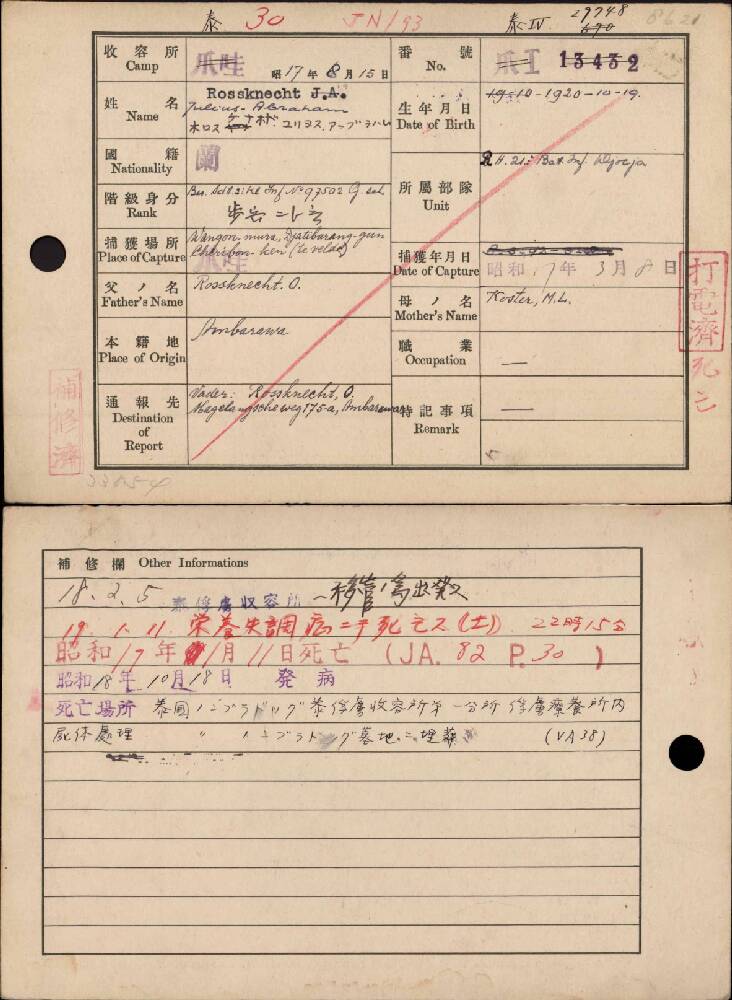 泰 30 JN/93 泰IV 29748
690
収容所
Camp
爪哇
昭17年8月15日
番號
No.
爪I 13432
姓名
Name
Rossknecht J.A.
Julius-Abraham
ユリヨス.アーブラハム
生年月日
Date of Birth
1920-10-19.
國籍
Nationality
蘭
階級身分
Rank
所屬部隊
Unit
捕獲場所
Place of Capture
Wangon-mura, Djatibarang-gun
Cheribon-ken (te velde)
爪哇
捕獲年月日
Date of Capture
昭和17年3月8日
父ノ名
Father's Name
Rossknecht. O.
母ノ名
Mother's Name
Koster, M.L.
本籍地
Place of Origin
Ambarawa
職業
Occupation
—
通報先
Destination
of
Report
Vader: Rossknecht, O.
Magelangscheweg 175-a, Ambarawa
特記事項
Remark
—
打電濟
死亡
補修濟
補修欄 Other Informations
18.2.5 泰俘虜収容所ヘ移管ノ為出發ス
19.1.11. 栄養失調症ニテ死亡ス(土) 22時15分
昭和19年1月11日死亡 (JA. 82 P. 30 )
昭和18年10月18日 発病
死亡場所 泰国ノンプラドック泰俘虜収容所第一分所俘虜療養所内
屍体處理 〃 ノンプラドック墓地ニ埋葬 (VA38)